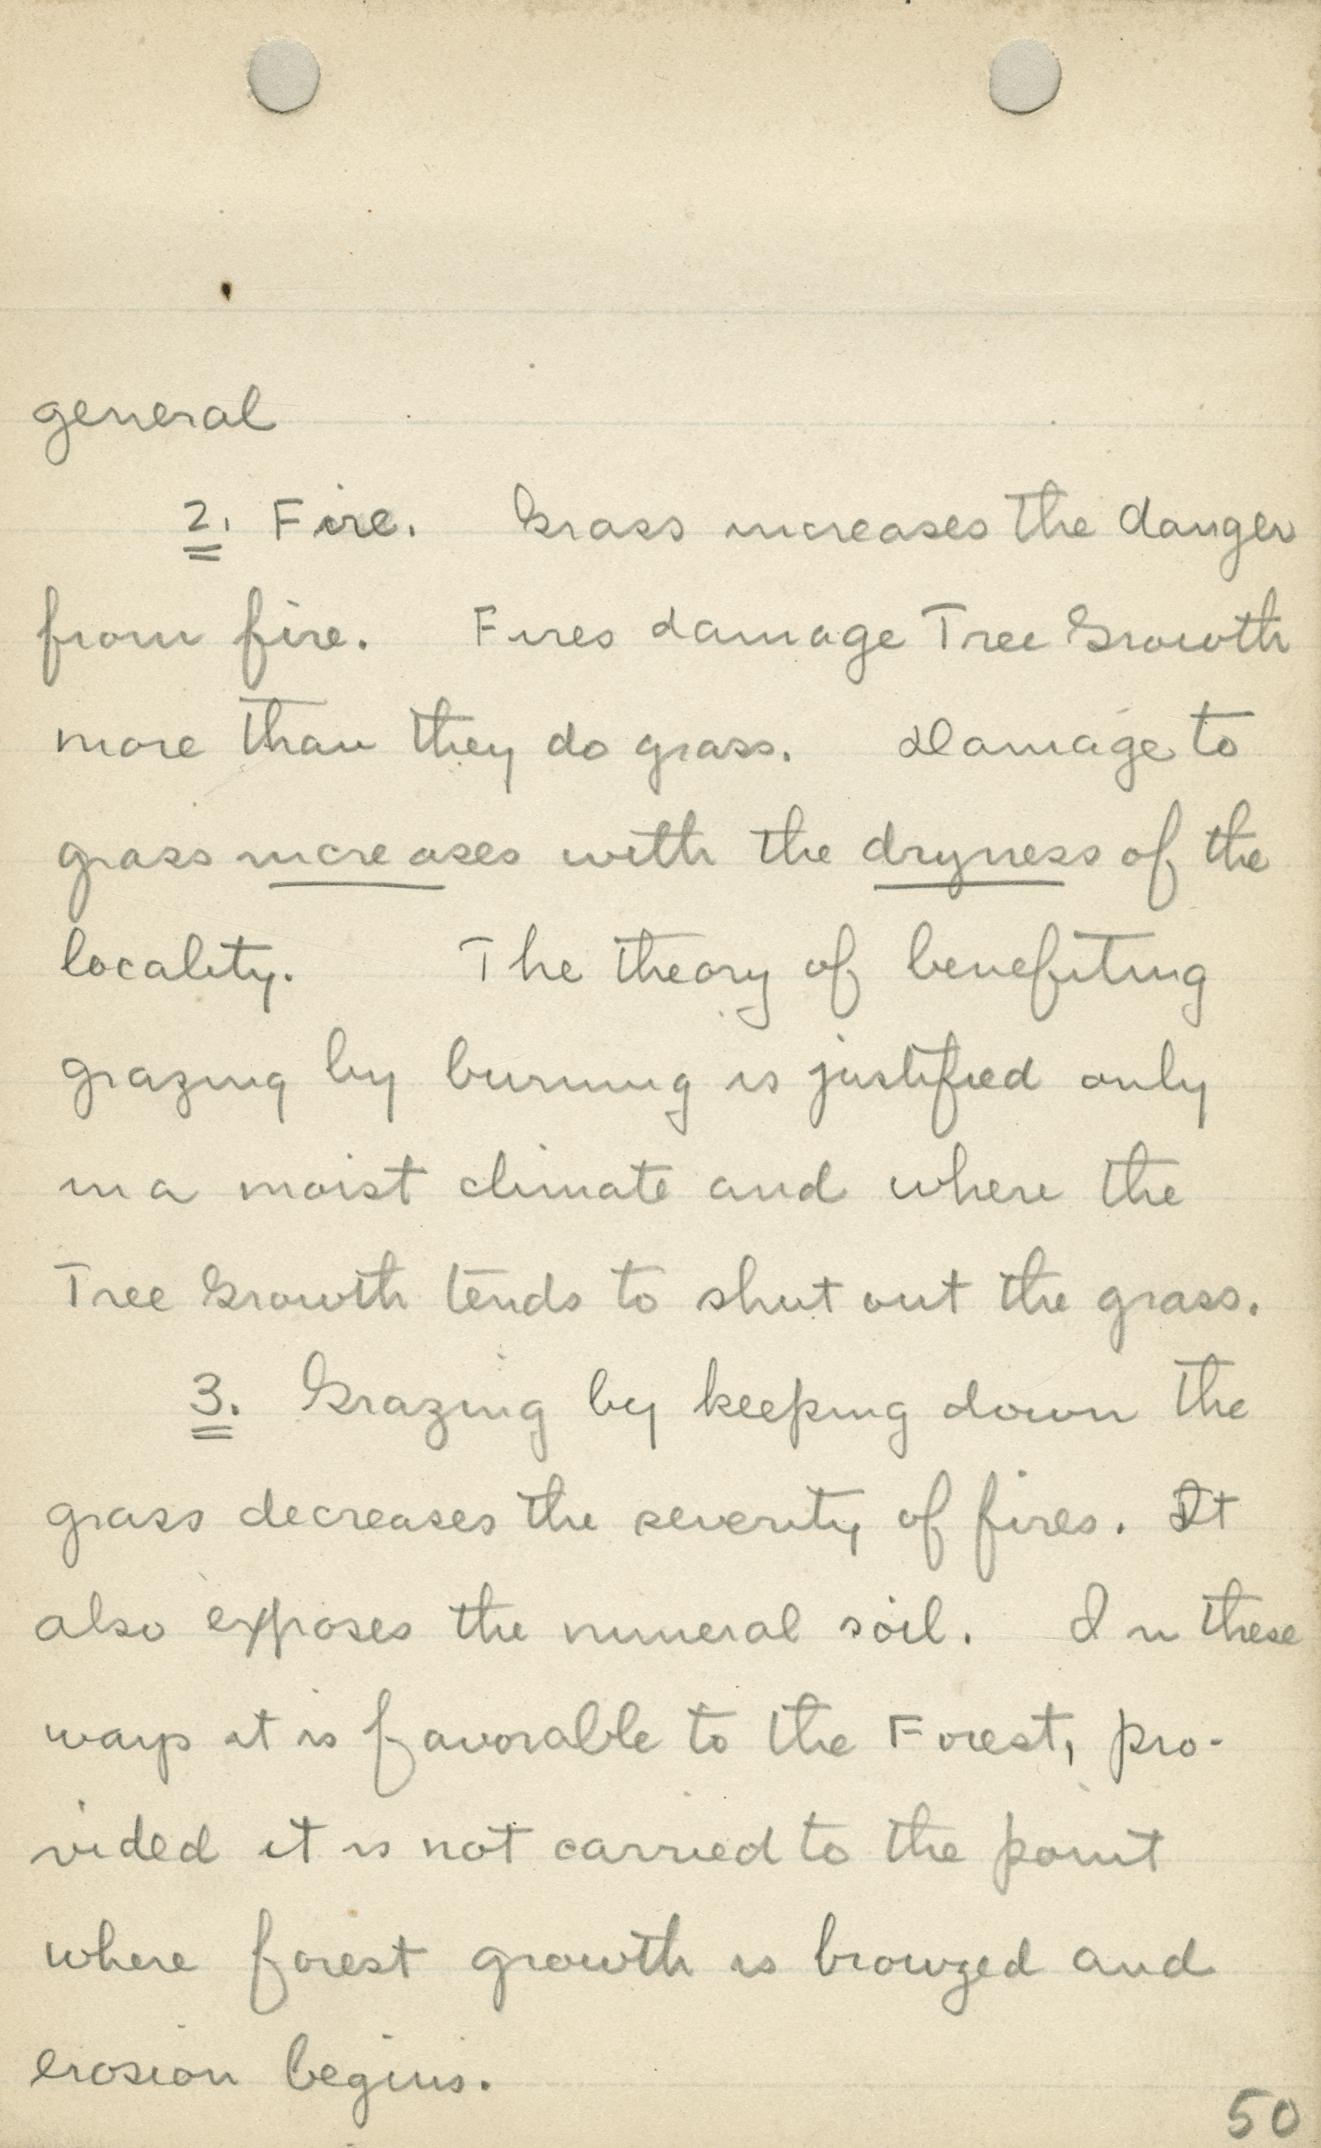 general
2. Fire. Grass increases the danger
from fire. Fires damage Tree Growth
more than they do grass. Damage to
grass increases with the dryness of the
locality. The theory of benefiting
grazing by burning is justified only
in a moist climate and where the
Tree Growth tends to shut out the grass.
3. Grazing by keeping down the
grass decreases the severity of fires. It
also exposes the mineral soil. In these
ways it is favorable to the Forest, pro-
vided it is not carried to the point
where forest growth is browzed and
erosion begins.
50